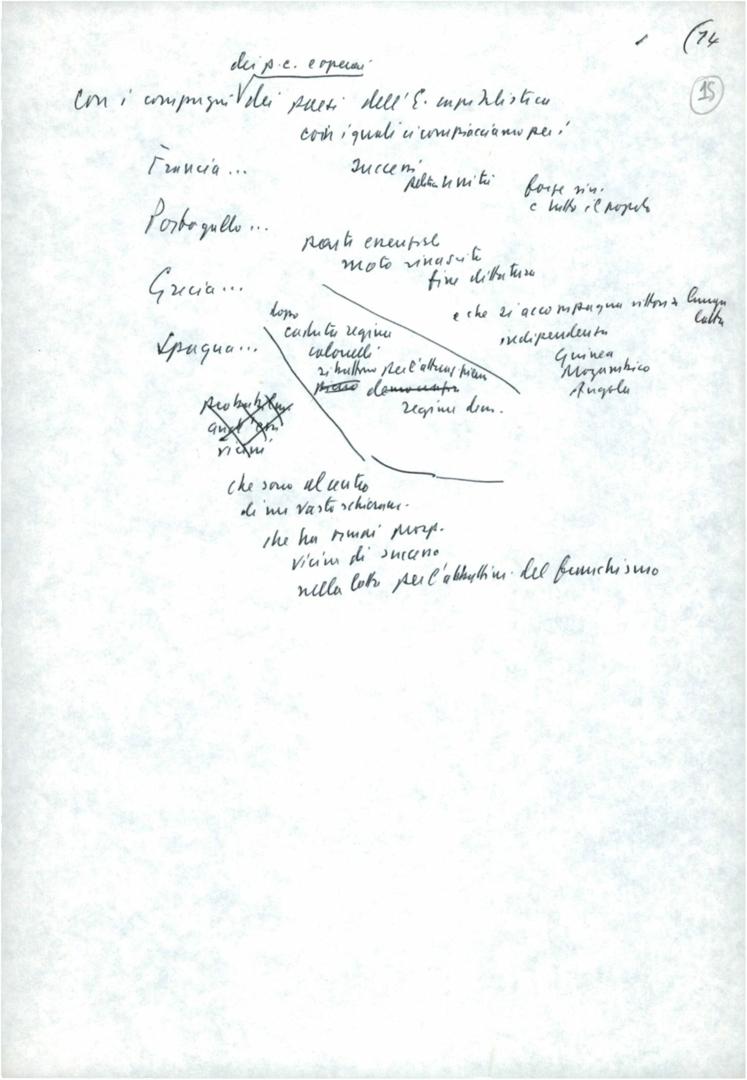 (14
15
dei p.c. e operai
con i compagni dei paesi dell'E. capitalistica
con i quali ci compiacciamo per i
Francia... successi
politica unità
forze sin.
e tutto il popolo
Portogallo...
parte essenziale
moto rinascita
fine dittatura
e che si accompagna vittoria lunga
lotta
indipendenza
Guinea
Mozambico
Angola
Grecia...
dopo
caduta regime
colonelli
si battono per l'
regime dem.
Spagna...
vicini
che sono al centro
di un vasto schieram.
che ha ormai prosp.
vicine di successo
nella lotta per l'abbattim. del franchismo